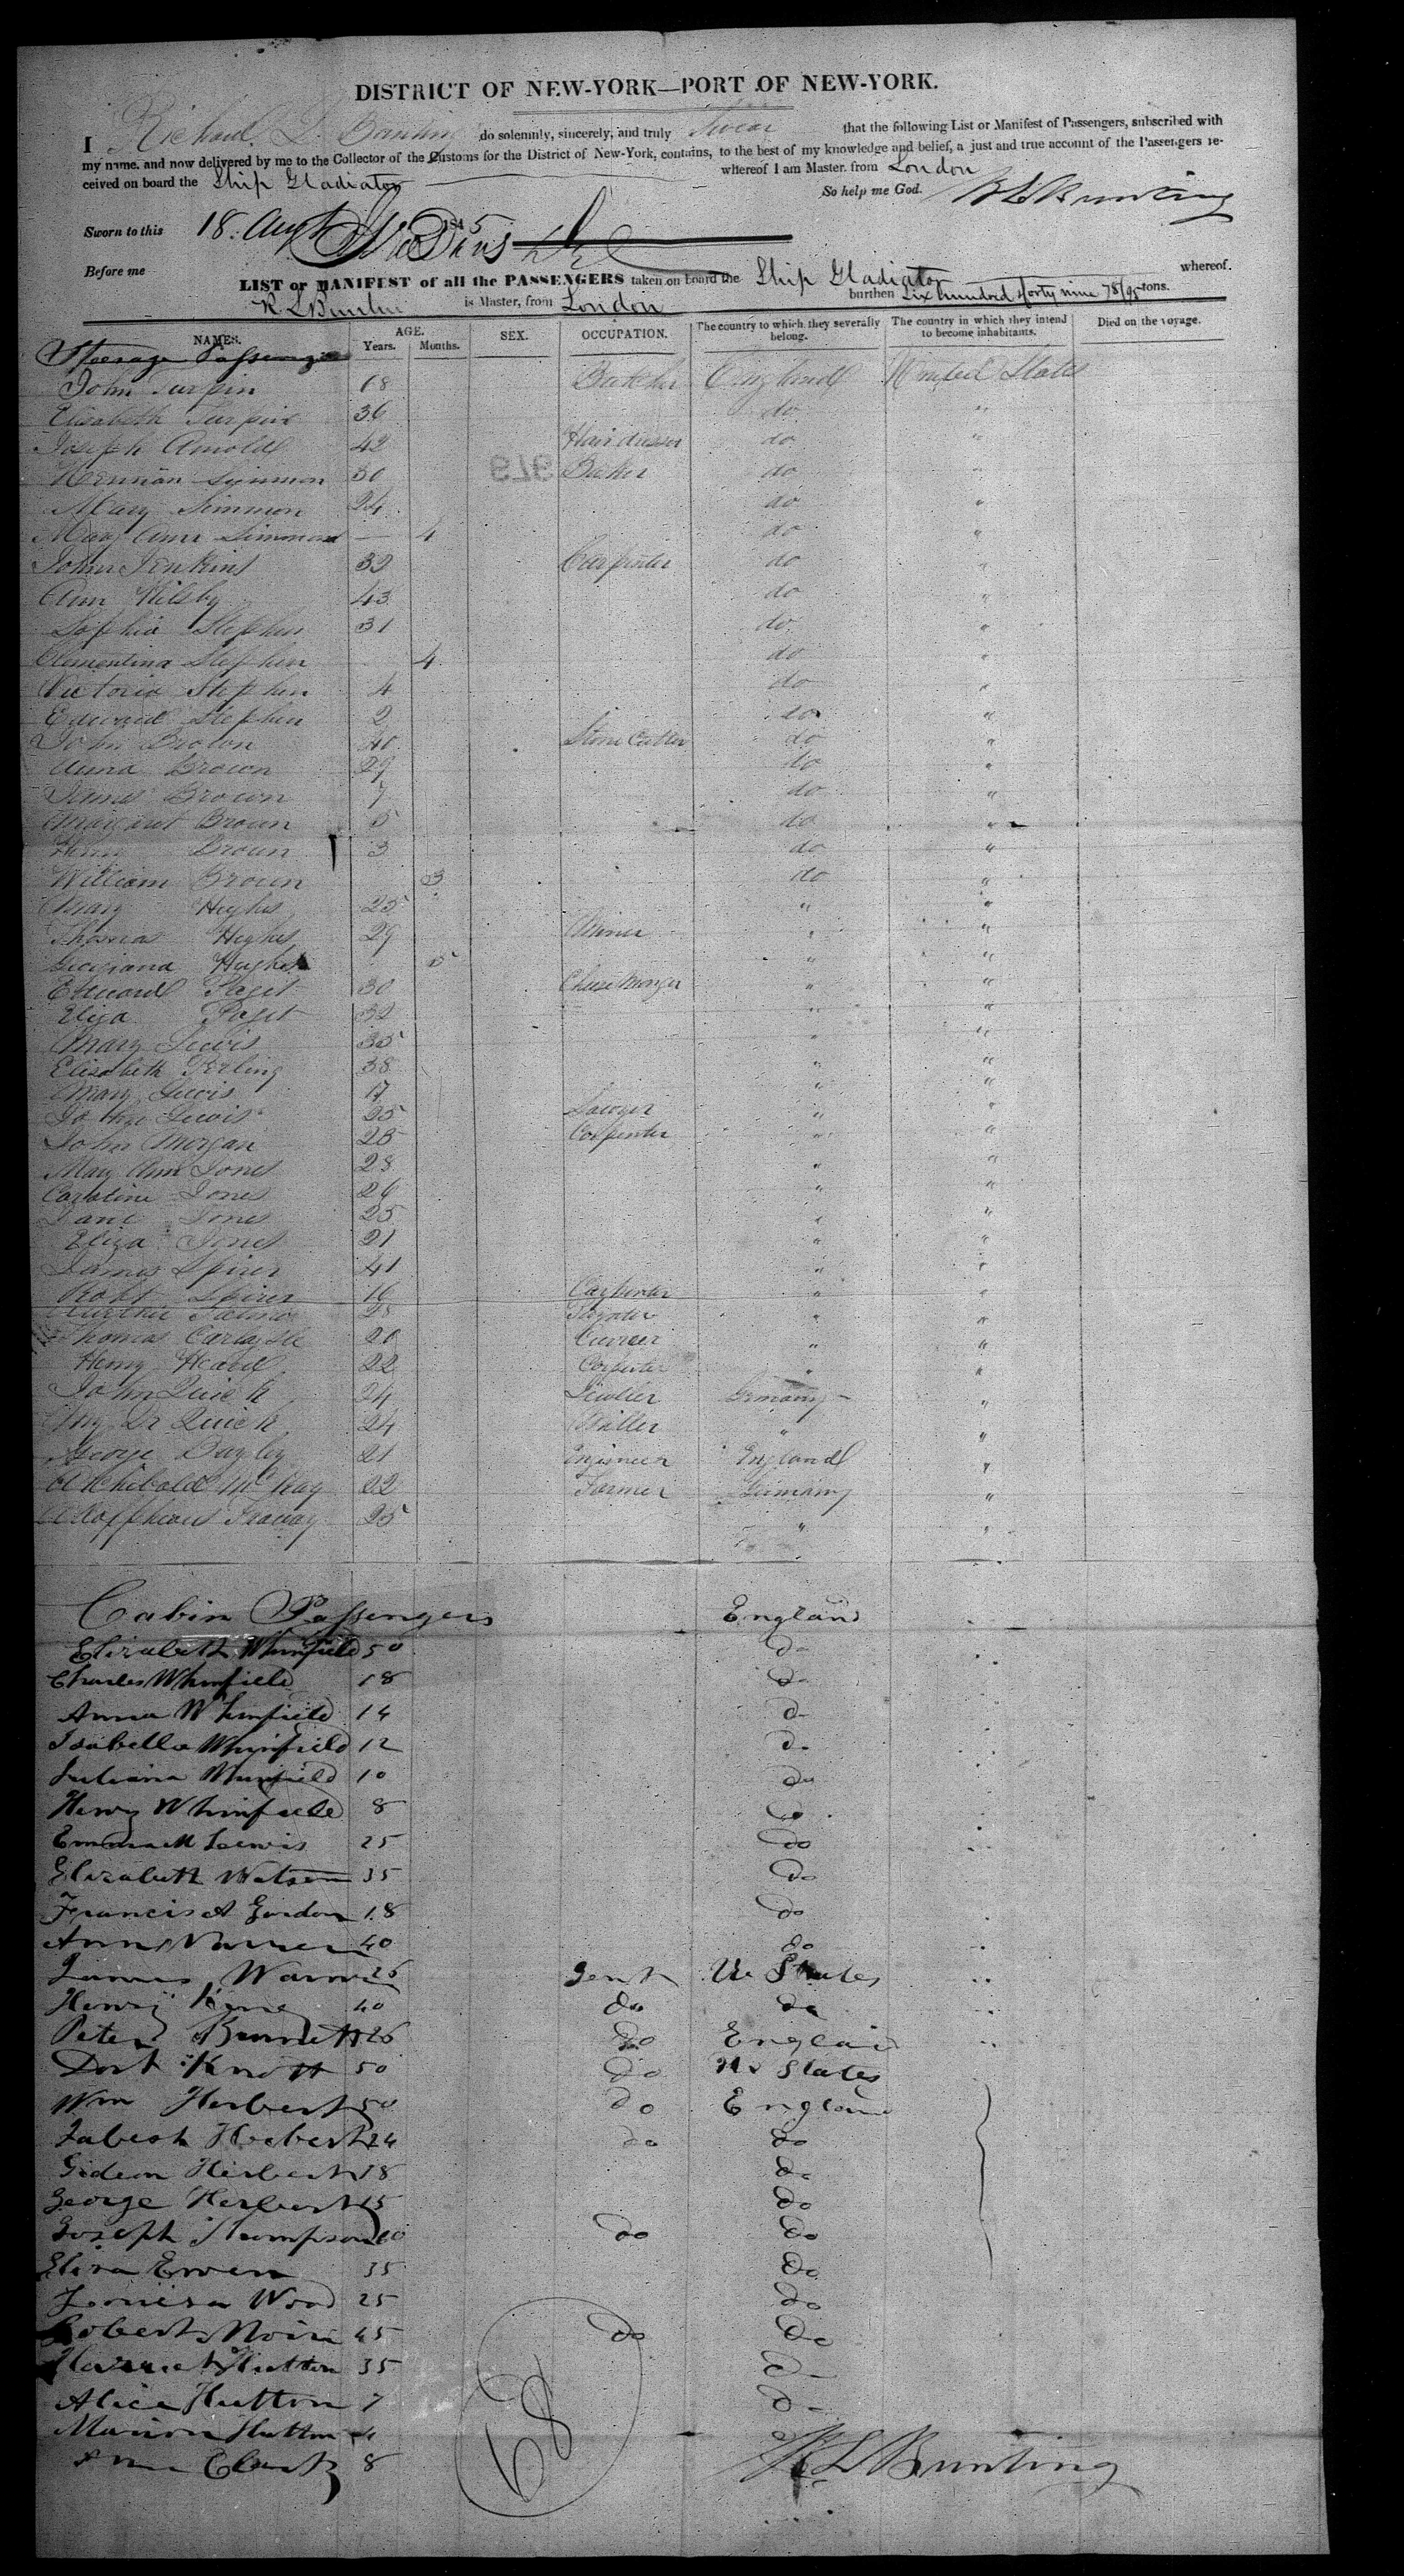 DISTRICT OF NEW-YORK—PORT OF NEW-YORK.
I Richard L. Bunting do solemnly, sincerely, and truly Swear that the following List or Manifest of Passengers, subscribed with
my name, and now delivered by me to the Collector of the Customs for the District of New-York, contains, to the best of my knowledge and belief, a just and true account of the Passengers re-
ceived on board the Ship Gladiator whereof I am Master, from London
So help me God. R L Bunting
Sworn to this 18. Augt 1845
Before me
LIST or MANIFEST of all the PASSENGERS taken on board the Ship Gladiator whereof.
R. L Bunting is Master, from London burthen Six hundred & forty nine 78/95 tons.
NAMES. AGE. Years. Months. SEX. OCCUPATION. The country to which they severally belong. The country in which they intend to become inhabitants. Died on the voyage.
Steerage Passengers
John Turpin 68 Butcher England United States
Elisabeth Turpin 36 do "
Joseph Arnold 42 Hairdresser do "
Herman Simmon 30 Baker do "
Mary Simmon 24 do "
Mary Ann Simmon — 4 do "
John Jenkins 32 Carpenter do "
Ann Hilsby 43 do "
Sophia Stephen 31 do "
Clementina Stephen 4 do "
Victoria Stephen 4 do "
Edward Stephen 2 do "
John Brown 40 Stone Cutter do "
Anna Brown 29 do "
James Brown 7 do "
Margaret Brown 5 do "
Henry Brown 3 do "
William Brown 3 do "
Mary Hughes 25 " "
Thomas Hughes 29 Miner " "
Georgiana Hughes 5 " "
Edward Paget 30 Cheese Monger " "
Eliza Paget 32 " "
Mary Lewis 35 " "
Elisabeth Perling 38 " "
Mary Lewis 17 " "
John Lewis 25 Sawyer " "
John Morgan 23 Carpenter " "
Mary Ann Jones 28 " "
Caroline Jones 26 " "
Jane Jones 25 " "
Eliza Jones 21 " "
James Spirer 41 " "
Robt Spirer 16 Carpenter " "
25 "  "
Thomas Carlaysle 20 Currier " "
Henry Heard 22 Carpenter " "
John Quick 24 Germany "
Quick 24 Miller " "
George Bayley 21 Engineer England "
Archibald McKay 22 Farmer Germany "
25 " "
Cabin Passengers England
Elizabeth Whinfield 50 do
Charles Whinfield 18 do
Anna Whinfield 14 do
Isabella Whinfield 12 do
Juliana Whinfield 10 do
Henry Whinfield 8 do
Lewis 25 do
Elizabeth Watson 35 do
Francis A Gordon 18 do
Ann Warren 40 do
James Warren 26 Gent U. States
Henry King 40 do do
Peter Burnett 26 do England
Knott 50 do U. States
Wm Herbert 50 do England
Jabesh Herbert 24 do do
Gideon Herbert 18 do
George Herbert 15 do
Joseph Thompson do do
Eliza Ewen 35 do
Louisa Wood 25 do
Robert 45 do do
Harriet Hutton 35 do
Alice Hutton 7 do
Marion Hutton 4 do
Clark 8
R L Bunting
68